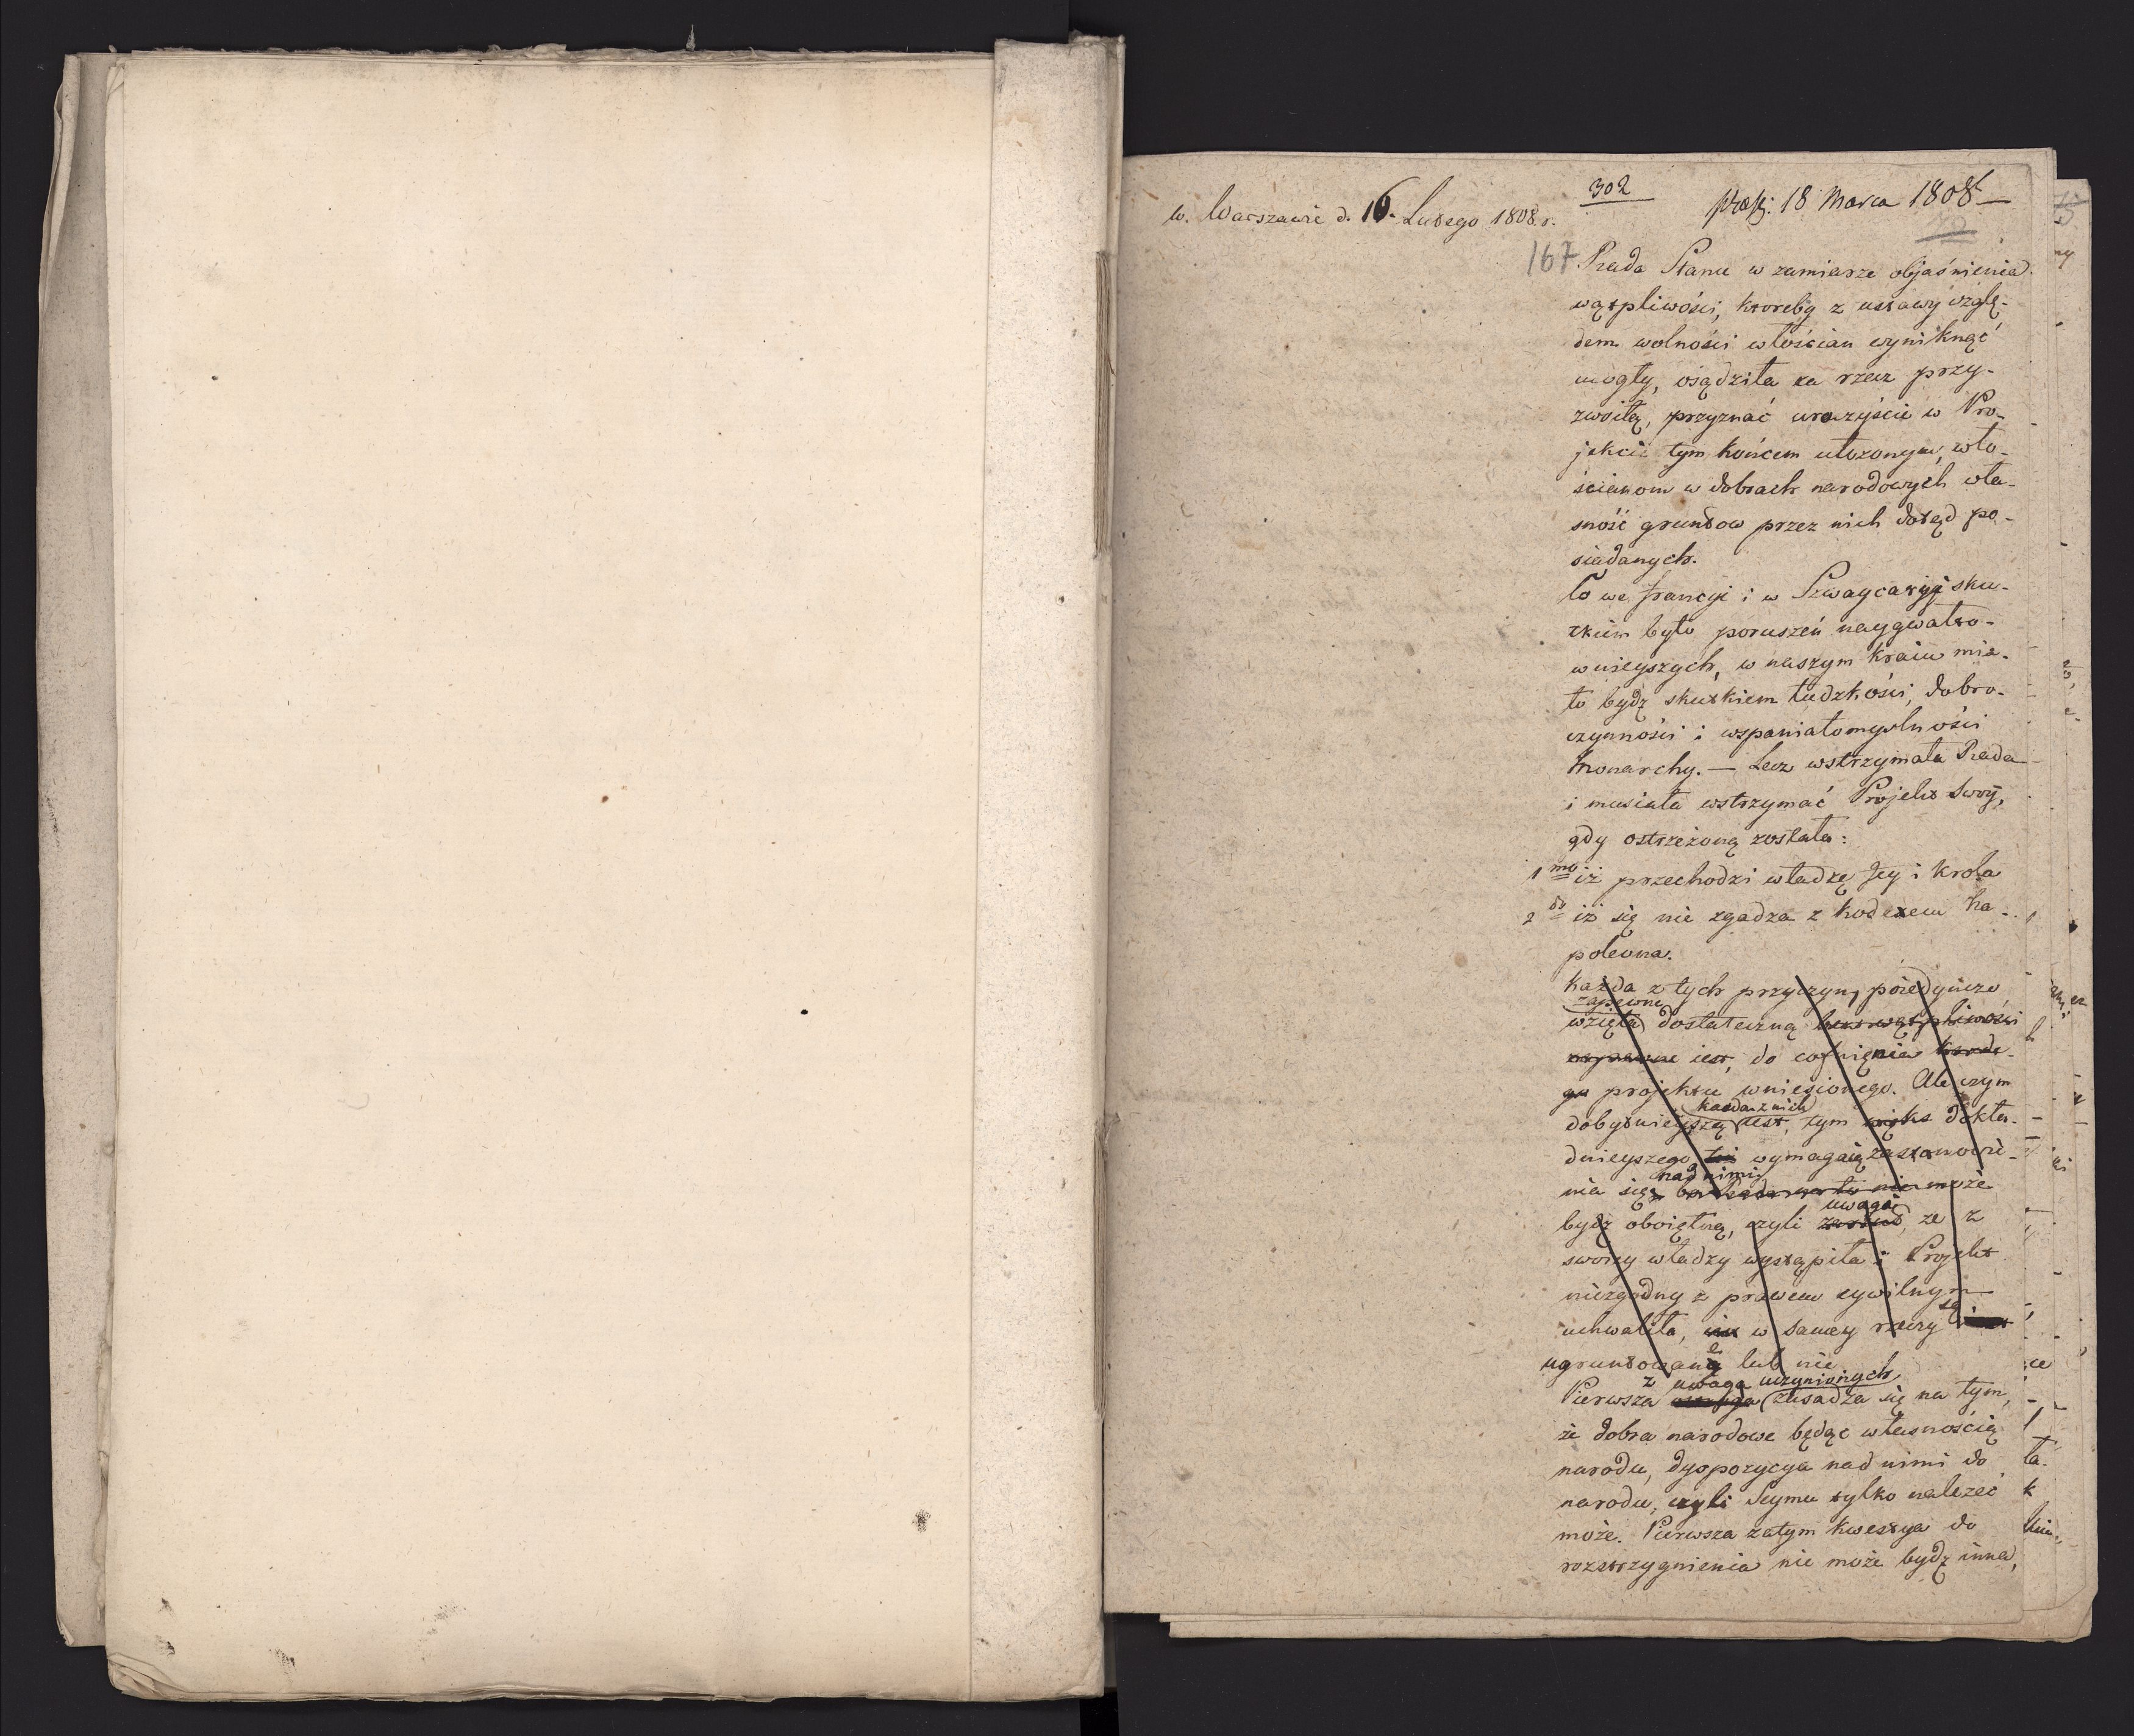 w. Warszawie d. 16. Lutego 1808 r.
302
18 Marca 1808
167
Rada Stanu w zamiarze objaśnienia
wątpliwości, ktoreby z ustawy wzglę-
dem wolności włościan wyniknąć
mogły, osądziła za rzecz przy-
zwoitą, przyznać uroczyście w Pro-
jekcie tym końcem ułożonym, wło-
ścianom w dobrach narodowych wła-
sność gruntow przez nich dotąd po-
siadanych.
Co we francyi i w Szwaycaryi sku-
tkiem było poruszeń naygwałto-
wnieyszych, w naszym kraiu mia-
ło bydź skutkiem ludzkości, dobro-
czynności i wspaniałomyslności
Monarchy. — Lecz wstrzymała Rada
i musiała wstrzymać Projekt swoy,
gdy ostrzeżoną została:
1mo iż przechodzi władzę Jey i Krola
2do iż się nie zgadza z kodexem Na-
poleona.
Każda z tych przyczyn, poiedyńczo
zapewne
wzięta dostateczną bez wątpliwości
zapewne iest, do cofnięnia każde-
go projektu wniesionego. Ale czym
każda z nich
dobytnieyszą iest, tym więks dokła-
dnieyszego też wymagaią zastanowie-
nad nimi
nia się, bo Rada na to nie może
uwagai
bydź oboiętną, czyli ze z
swoiey władzy wystąpiła i Projekt
niezgodny z prawem cywilnym
są
uchwaliła, w samey rzeczy
ugruntowane lub nie
z uwag uczynionych
Pierwsza zasadza się na tym,
że dobra narodowe będąc własnością
narodu, dyspozycya nad nimi do
narodu, czyli Seymu tylko należeć
może. Pierwsza zatym kwestya do
rozstrzygnienia nie może bydź inna,